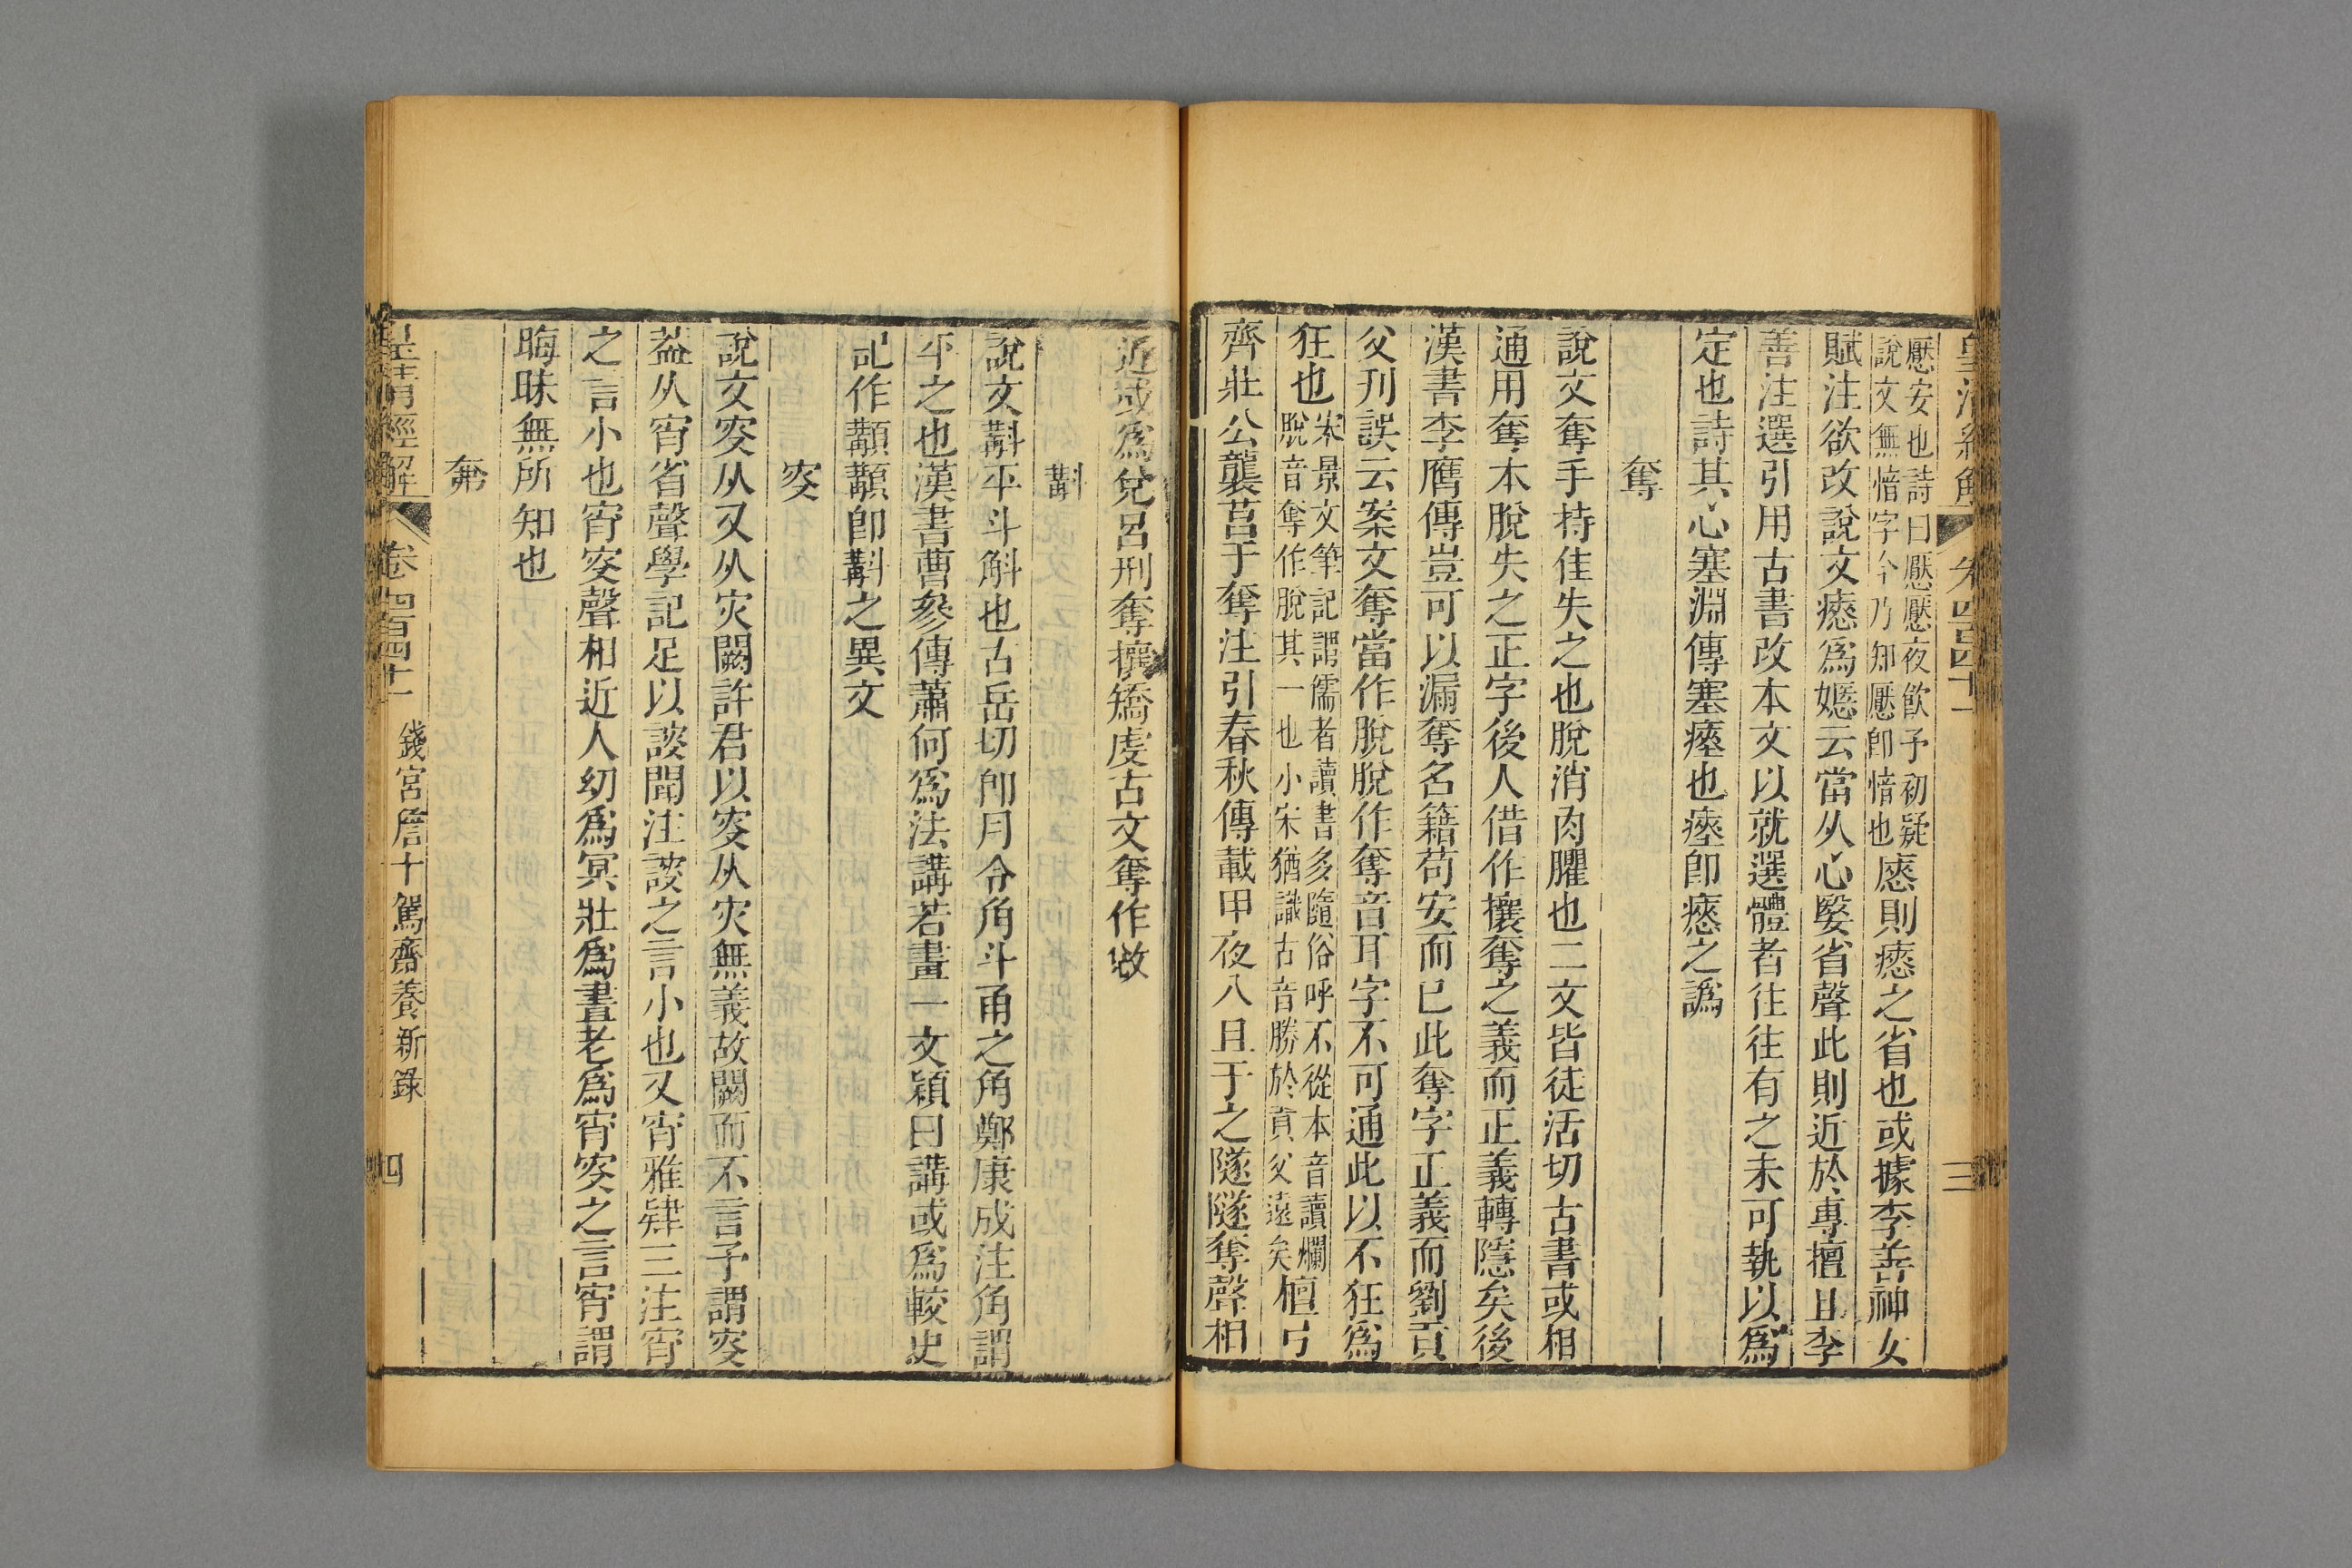 皇清經解 卷四百四十一 三
懕安也詩曰懕懕夜飮予初疑
說文無愔字今乃知懕卽愔也
㥷則瘱之省也或據李善神女
賦注欲改說文瘱爲嫕云當从心殹省聲此則近於專擅且李
善注選引用古書改本文以就選體者往往有之未可執以爲
定也詩其心塞淵傳塞瘞也瘞卽瘱之譌
奪
說文奪手持隹失之也脫消肉臞也二文皆徒活切古書或相
通用奪本脫失之正字後人借作攘奪之義而正義轉隱矣後
漢書李膺傳豈可以漏奪名籍苟安而已此奪字正義而劉貢
父刋誤云案文奪當作脫脫作奪音耳字不可通此以不狂爲
狂也
宋景文筆記謂儒者讀書多隨俗呼不從本音讀爛
脫音奪作脫其一也小宋猶識古音勝於貢父遠矣
檀弓
齊莊公襲莒于奪注引春秋傳載甲夜八且于之隧隧奪聲相
近或爲兌呂刑奪攘矯虔古文奪作敚
斠
說文斠平斗斛也古岳切卽月令角斗甬之角鄭康成注角謂
平之也漢書曹參傳蕭何爲法講若畫一文穎曰講或爲較史
記作顜顜卽斠之異文
㝜
說文㝜从又从灾闕許君以㝜从灾無義故闕而不言予謂㝜
葢从宵省聲學記足以謏聞注謏之言小也又宵雅肄三注宵
之言小也宵㝜聲相近人幼爲冥壯爲晝老爲宵㝜之言宵謂
晦昧無所知也
𡘷
皇清經解 卷四百四十一 錢宮詹十駕齋養新錄 四